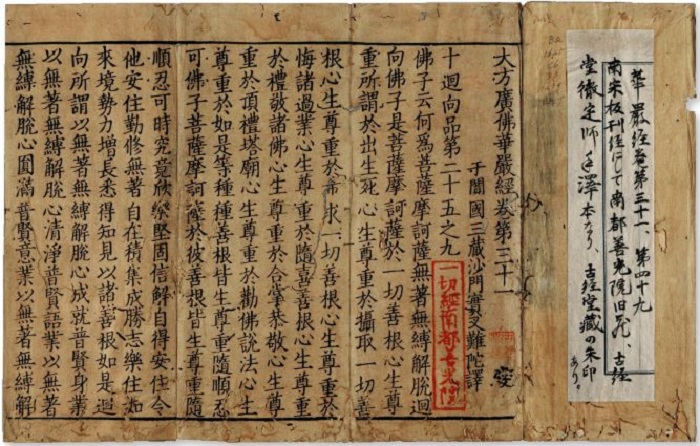 華嚴經卷第三十一、第四十九
南宋板刊経にして南都善光院旧蔵、古経
堂徹定師手澤本なり、古経堂蔵の朱印
あり。
大方廣佛華嚴經卷第三十一
于闐國三藏沙門實叉難陀譯
一切經南都善光院
十迴向品第二十五之九
佛子云何為菩薩摩訶薩無著無縛解脫迴
向佛子是菩薩摩訶薩於一切善根心生尊
重所謂於出生死心生尊重於攝取一切善
根心生尊重於希求一切善根心生尊重於
悔諸過業心生尊重於隨喜善根心生尊重
於禮敬諸佛心生尊重於合掌恭敬心生尊
重於頂禮塔廟心生尊重於勸佛說法心生
尊重於如是等種種善根皆生尊重隨順忍
可佛子菩薩摩訶薩於彼善根皆生尊重隨
順忍可時究竟欣樂堅固信解自得安住令
他安住勤修無著自在積集成勝志樂住如
來境勢力增長悉得知見以諸善根如是迴
向所謂以無著無縛解脫心成就普賢身業
以無著無縛解脫心清淨普賢語業以無著
無縛解脫心圓滿普賢意業以無著無縛解